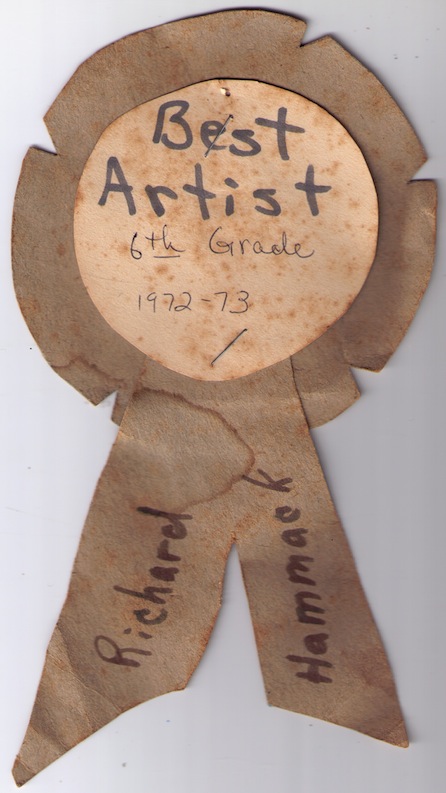 Best
Artist
6th Grade
1972-73
Richard
Hammack